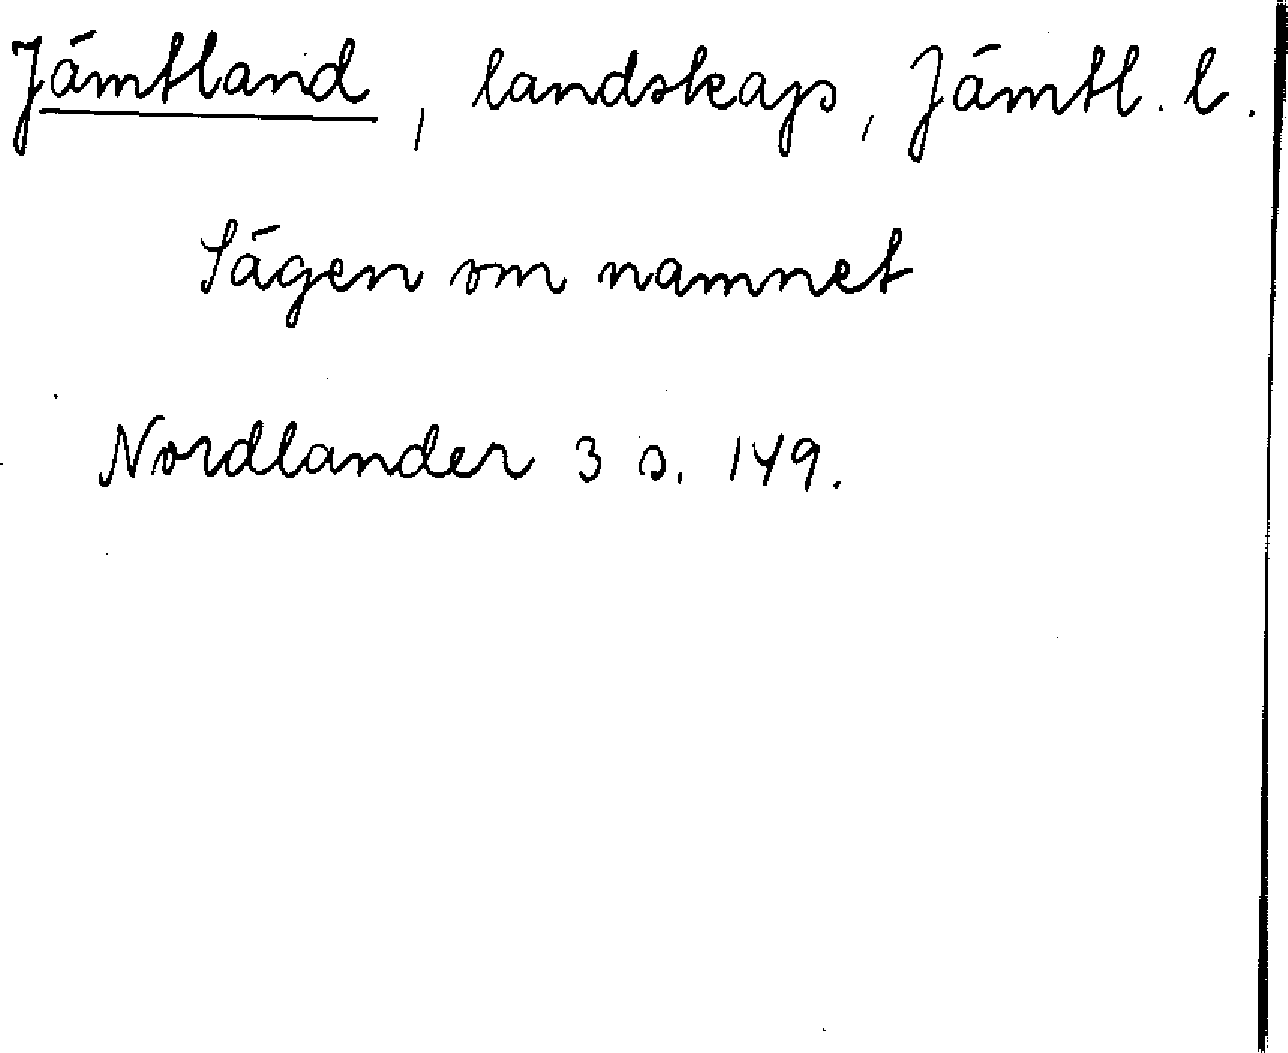 Jämtland, landskap, Jämtl. l.
Sägen om namnet
Nordlander 3 s. 149.